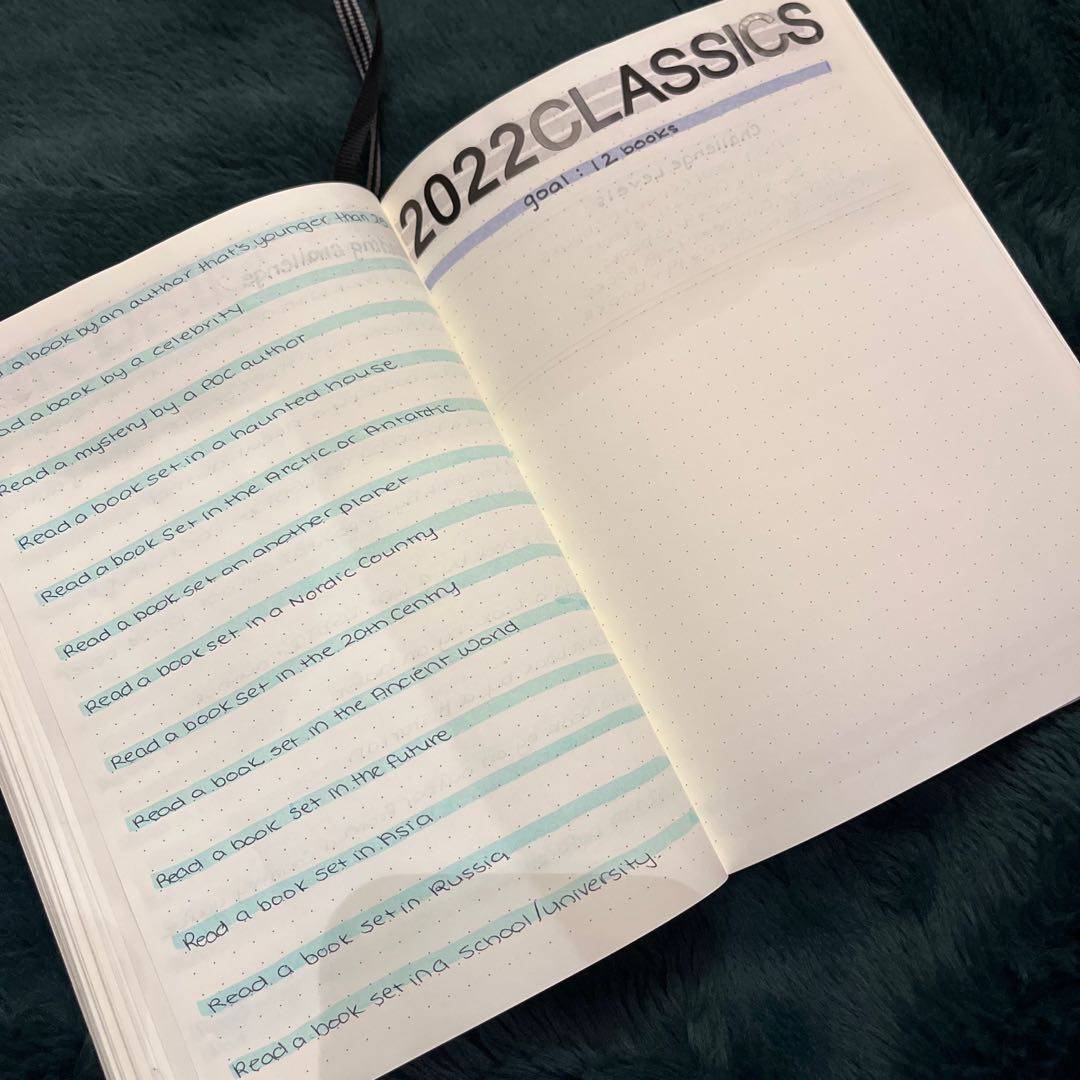 a book by an author that's younger than
a book by a celebrity
Read a mystery by a POC author
Read a book set in a haunted house
Read a book set in the Arctic or Antarctic
Read a book set on another planet
Read a book set in a Nordic Country
Read a book set in the 20th Centry
Read a book set in the Ancient World
Read a book set in the future
Read a book set in Asia
Read a book set in Russia
Read a book set in a school/university.
2022CLASSICS
goal: 12 books
Challenge Levels